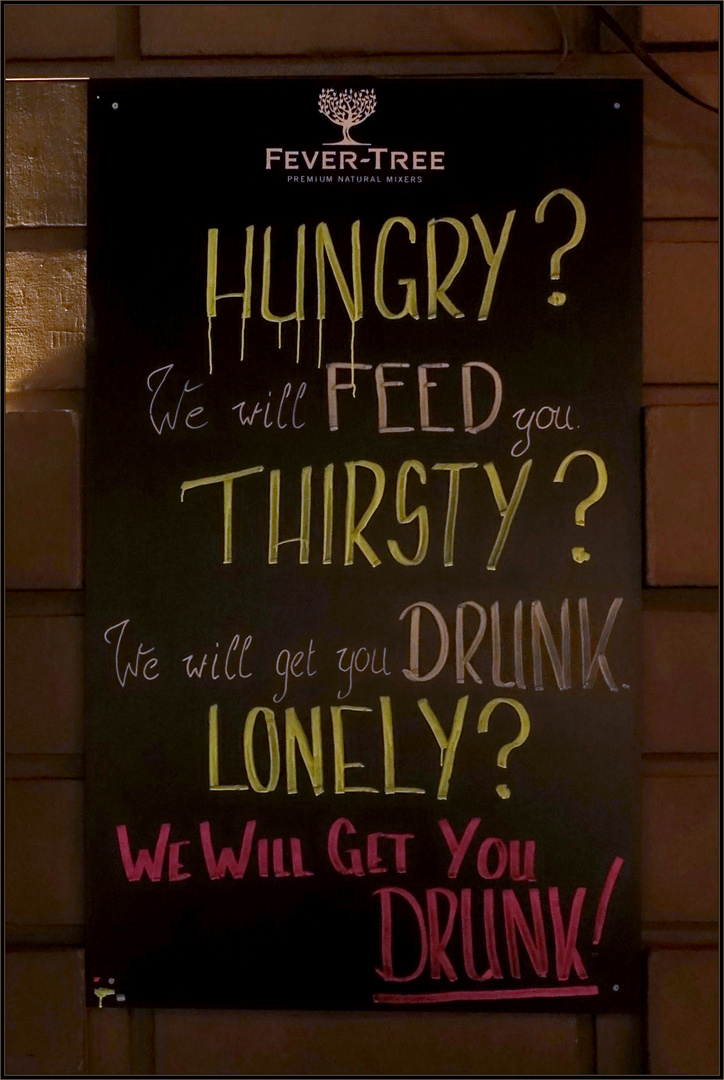 FEVER-TREE
PREMIUM NATURAL MIXERS
HUNGRY?
We will FEED you.
THIRSTY?
We will get you DRUNK.
LONELY?
WE WILL GET YOU
DRUNK!